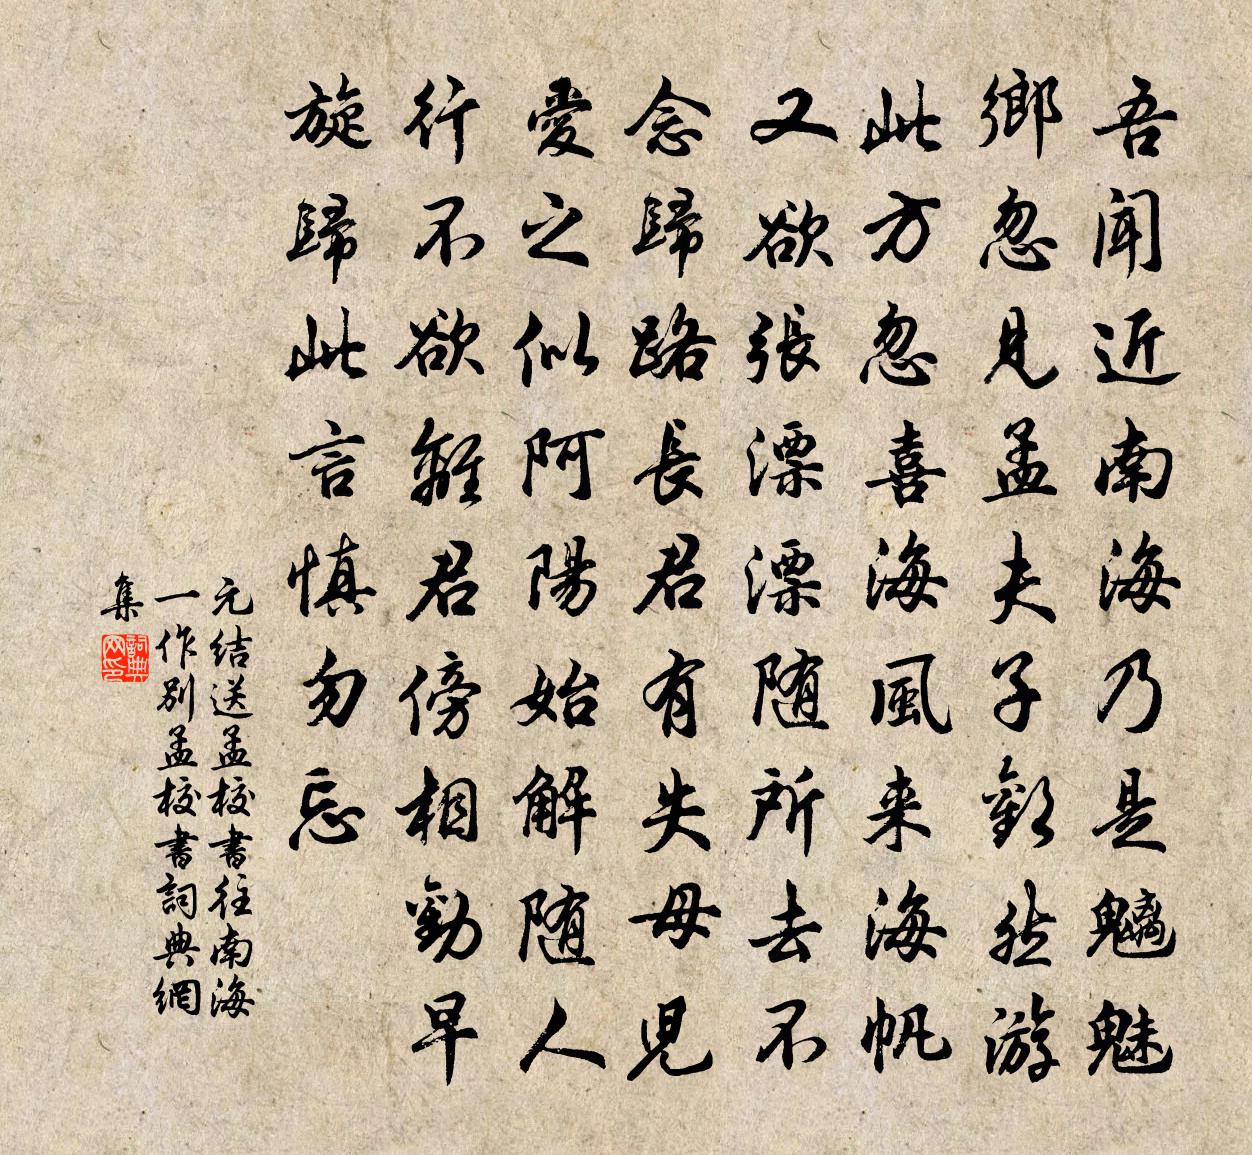 吾聞近南海乃是魑魅
鄉忽見孟夫子歡然游
此方忽喜海風来海帆
又欲張漂漂随所去不
念歸路長君有失母児
愛之似阿陽始解随人
行不欲離君傍相勸早
旋歸此言慎勿忘
元结送孟校書往南海
一作别孟校書詞典網
集
詞典網印